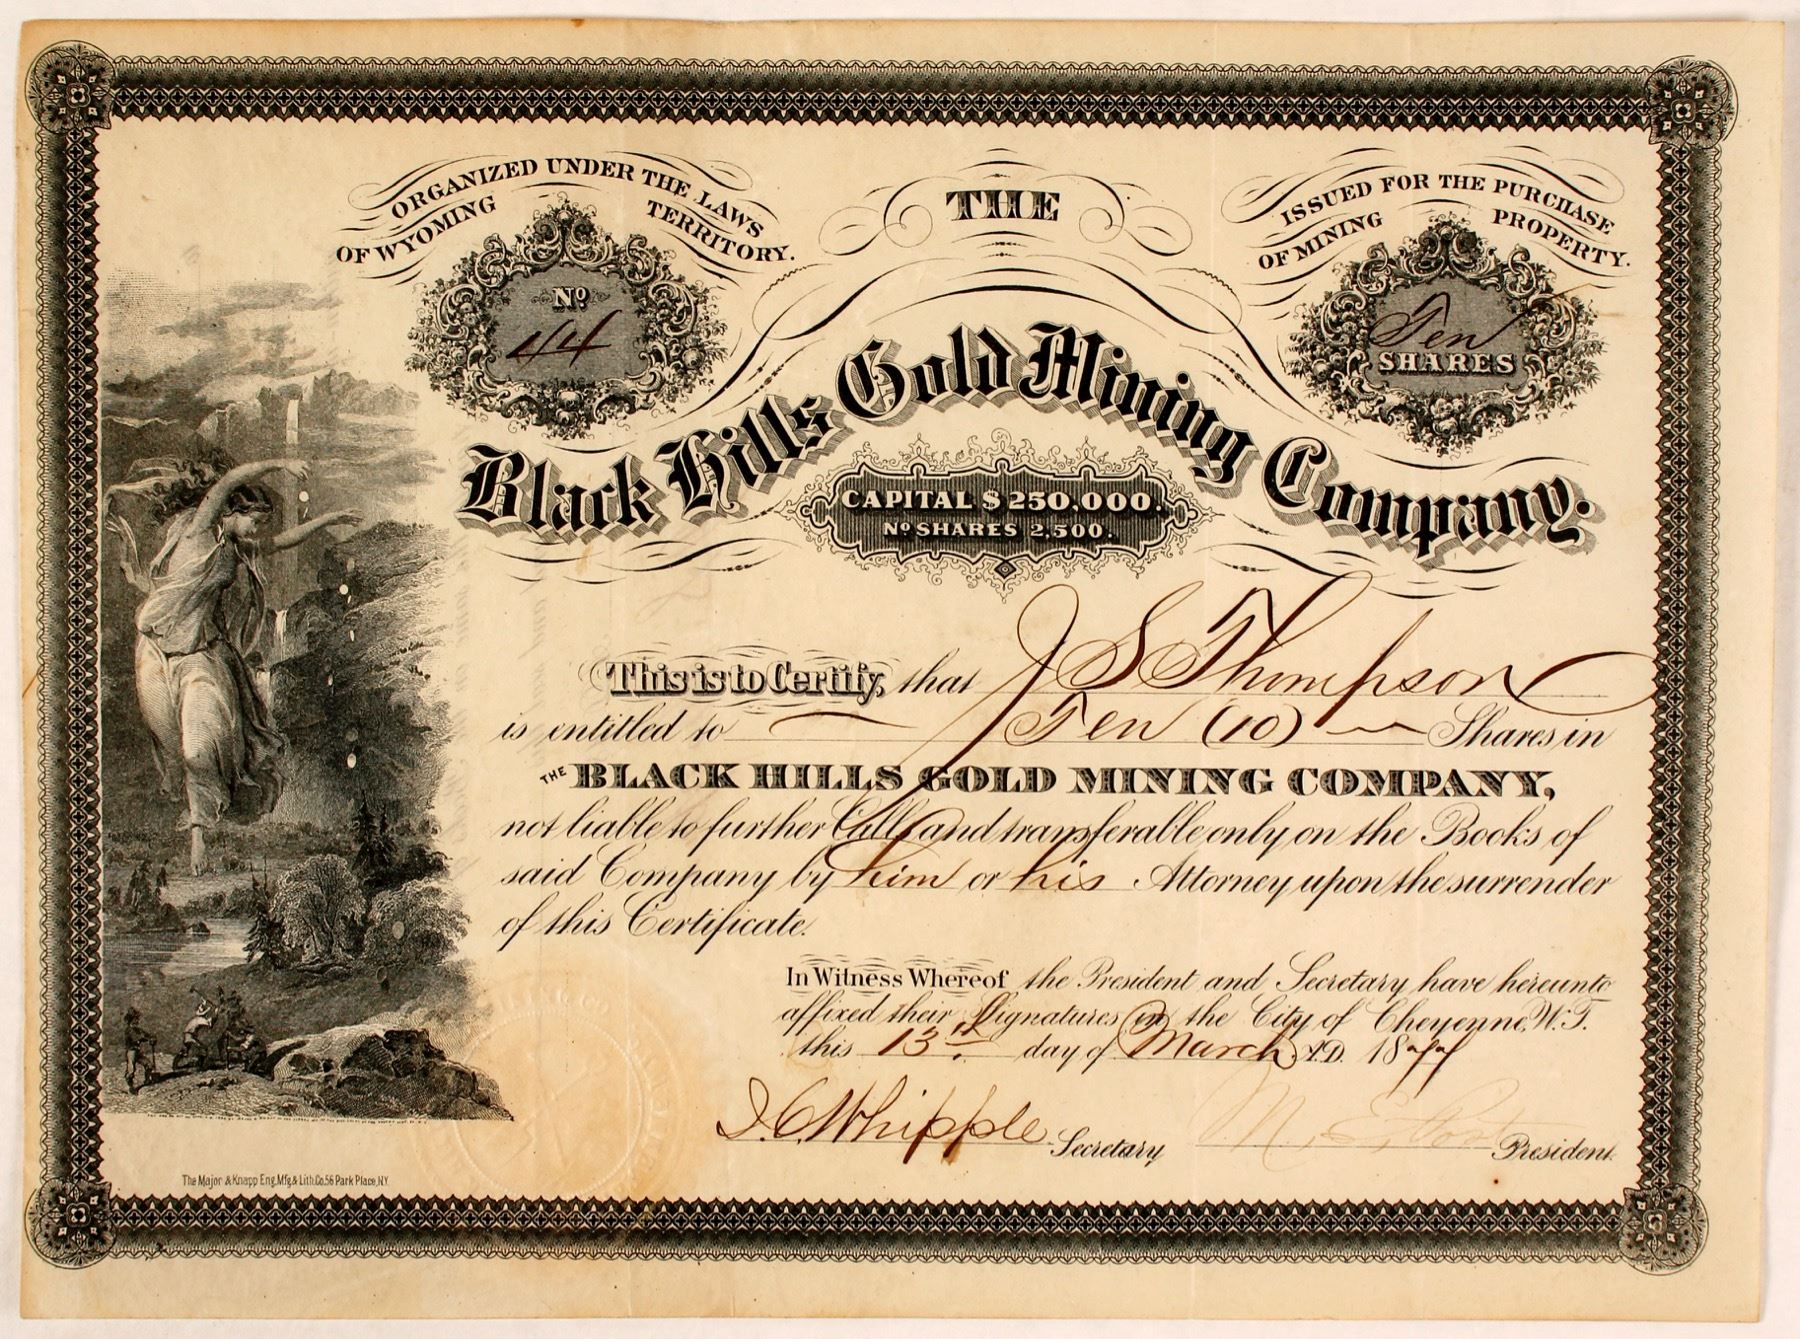 ORGANIZED UNDER THE LAWS
OF WYOMING TERRITORY.
No
44
THE
ISSUED FOR THE PURCHASE
OF MINING PROPERTY.
Ten
SHARES
Black Hills Gold Mining Company.
CAPITAL $250,000.
No SHARES 2,500.
This is to Certify, that J S Thompson
is entitled to Ten (10) Shares in
THE BLACK HILLS GOLD MINING COMPANY,
not liable to further Call and transferable only on the Books of
said Company by him or his Attorney upon the surrender
of this Certificate.
In Witness Whereof the President and Secretary have hereunto
affixed their Signatures in the City of Cheyenne, W.T.
this 13th day of March A.D. 1877
I. C. Whipple Secretary M. E. Post President
The Major & Knapp Eng, Mfg & Lith. Co. 56 Park Place, N.Y.